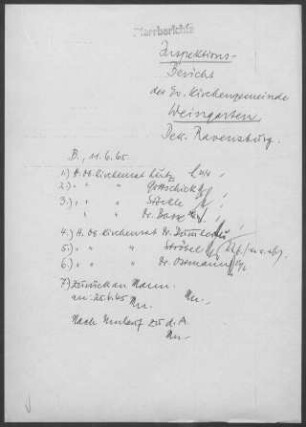 Pfarrberichte
Inspektions-
Bericht
der Ev. Kirchengemeinde
Weingarten
Dek. Ravensburg.
B., 11.6.65
1.) H. Ob. Kirchenrat Lutz
2.) " " Gottschick
3.) " " Stöckle
" " Dr.
4.) H. Ob. Kirchenrat Dr.
5.) " " Ströbel
6.) " " Dr. Ostmann
7) Zurück an
am 20.6.65
Nach Umlauf zu d. A.